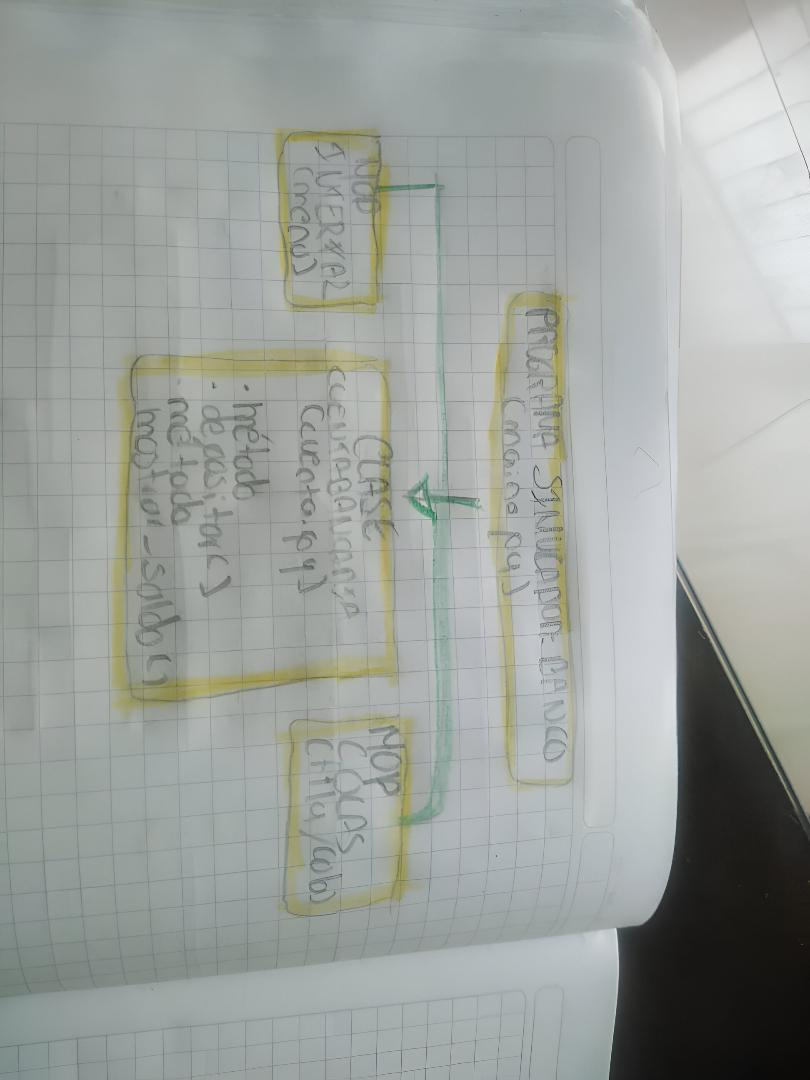 PROGRAMA SIMULADOR BANCO
(main.py)
MOD
INTERFAZ
(menu)
CLASE
CUENTABANCARIA
(cuenta.py)
• método
depositar()
• método
mostrar_saldo()
MOD
COLAS
(fila/cola)